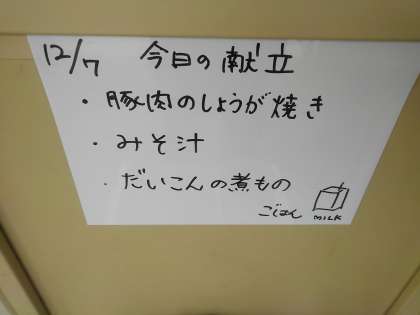 12/7 今日の献立
・豚肉のしょうが焼き
・みそ汁
・だいこんの煮もの
ごはん MILK